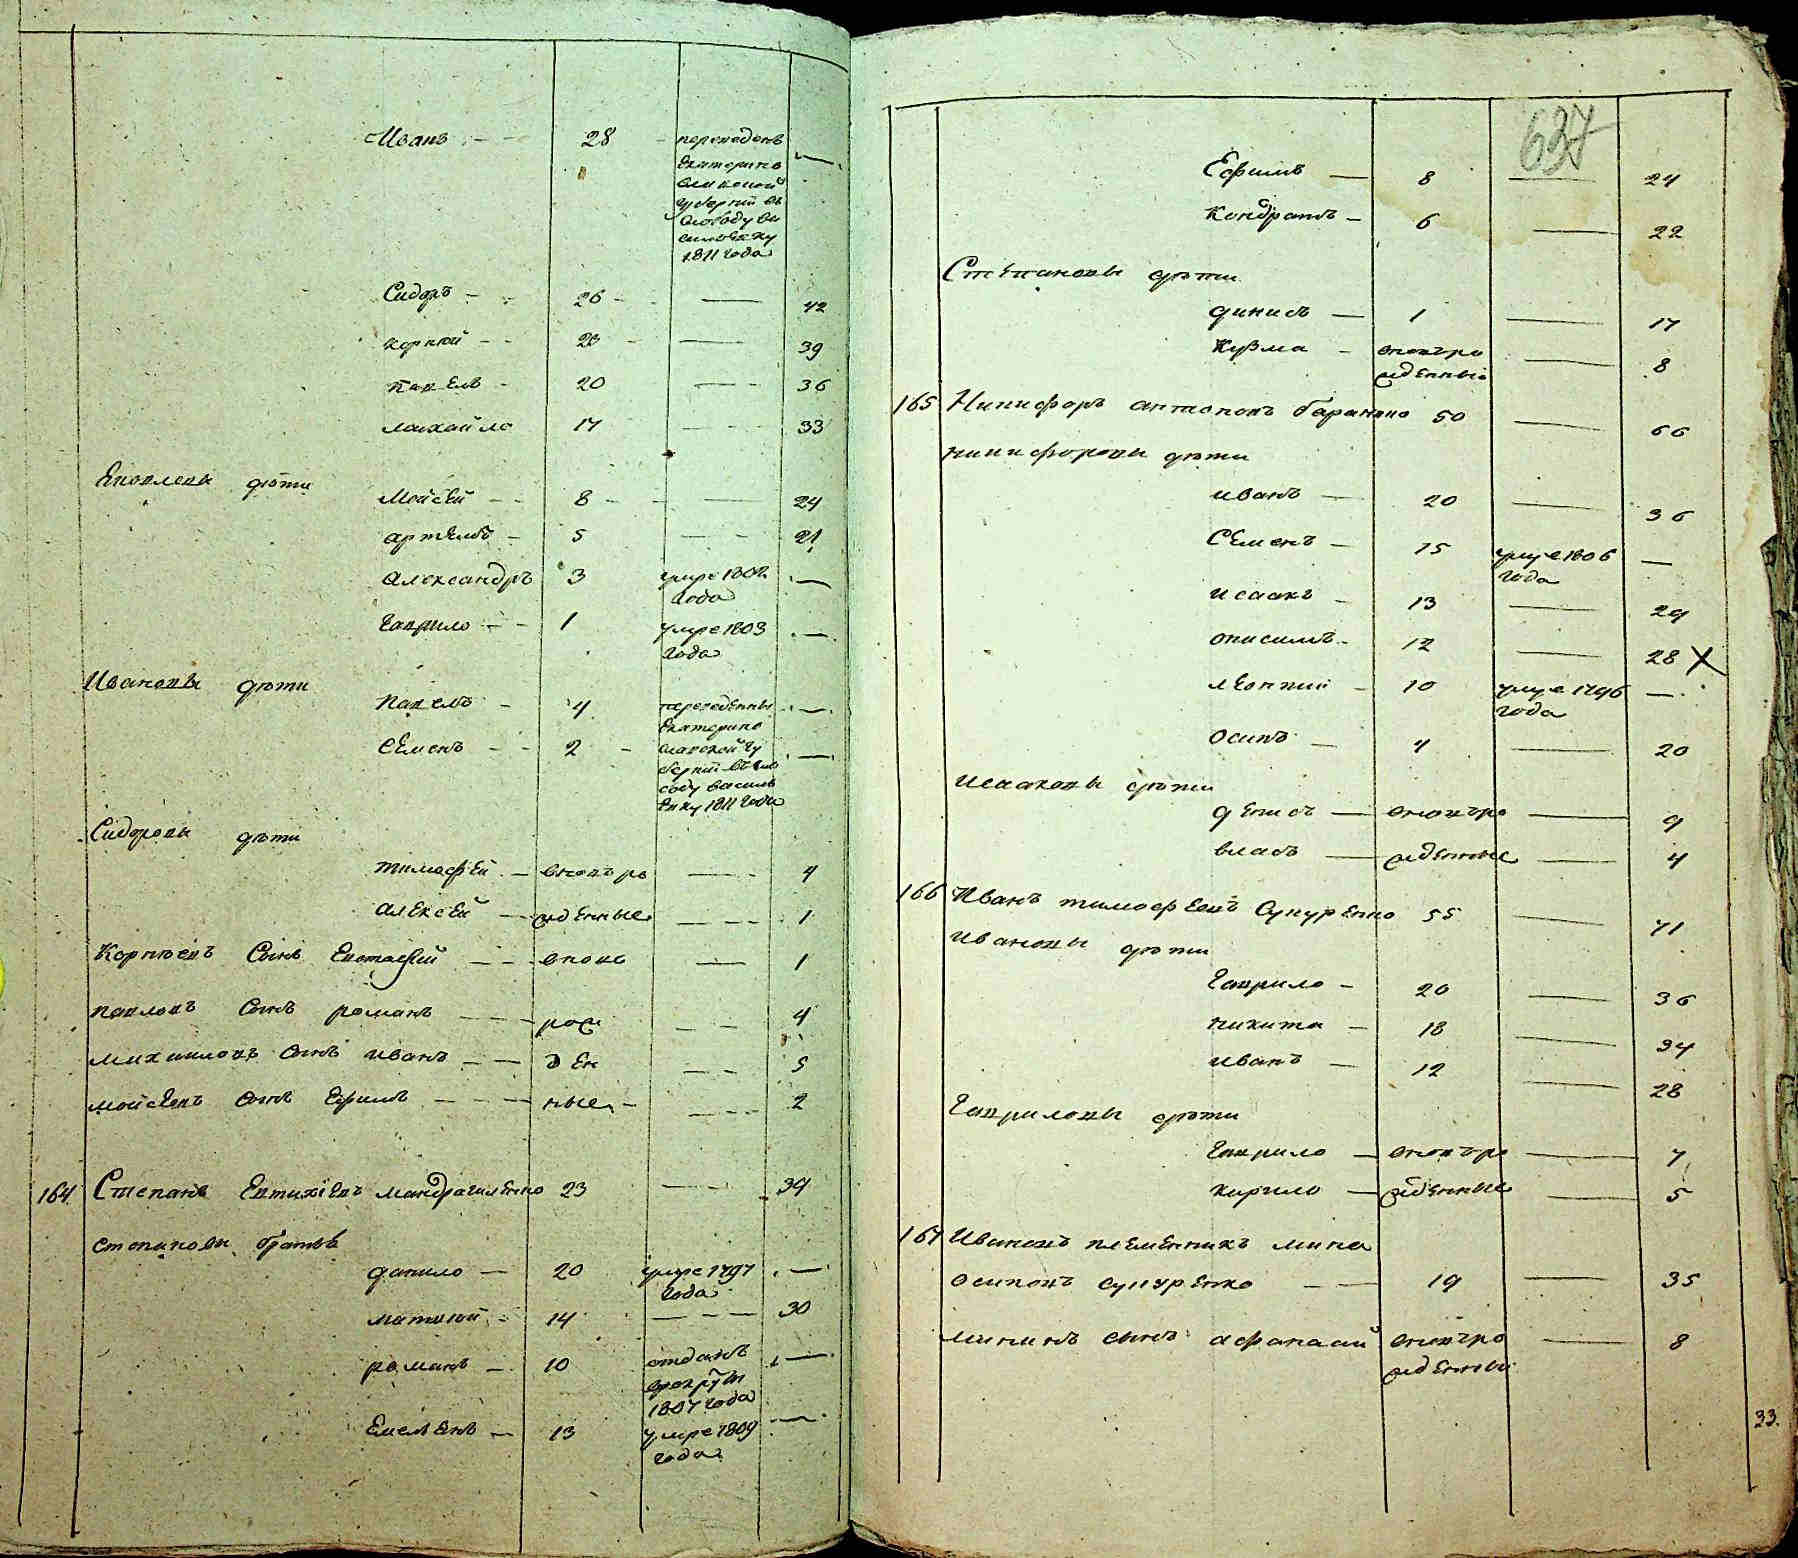 Иванъ 28 переведенъ
Екатерино
славской
губерніи въ
слободу Ва
сильевку
1811 года
Сидоръ 26 42
Корній 23 39
Павелъ 20 36
Михайло 17 33
Яковлевы дѣти
Мойсей 8 24
Артемъ 5 21
Александръ 3 умре 1802
года
Гаврило 1 умре 1803
года
Ивановы дѣти
Павелъ 4 переведенны
Екатерино
Семенъ 2 славской гу
берніи въ сло
боду Василь
евку 1811 года
Сидоровы дѣти
Тимофей вновь ро 4
Алексей жденные 1
Корнѣевъ сынъ Евстафий вновь 1
Павловъ сынъ романъ рож 4
Михаиловъ сынъ иванъ ден 5
Мойсеевъ сынъ Ефимъ ные 2
164 Степанъ Евтихіевъ 23 39
Степановы братья
данило 20 умре 1797
года
матвій 14 30
романъ 10 отданъ
врекруты
1807 года
Емельянъ 13 умре 1809
года
637
Ефимъ 8 24
Кондратъ 6 22
Степановы дѣти
динисъ 1 17
Кузма вновьро 8
жденный
165 Никифоръ антоновъ баранько 50 66
никифоровы дѣти
иванъ 20 36
Семенъ 15 умре 1806
года
исаакъ 13 29
онисимъ 12 28 X
леонтий 10 умре 1796
года
осипъ 4 20
исааковы дѣти
денисъ вновьро 9
власъ жденные 4
166 Иванъ тимофеевъ 55 71
ивановы дѣти
гаврило 20 36
никита 18 34
иванъ 12 28
гавриловы дѣти
гаврило вновьро 7
кирило жденные 5
167 Ивановъ племенникъ мина
осиповъ 19 35
мининъ сынъ афанасий вновьро 8
жденный
33.